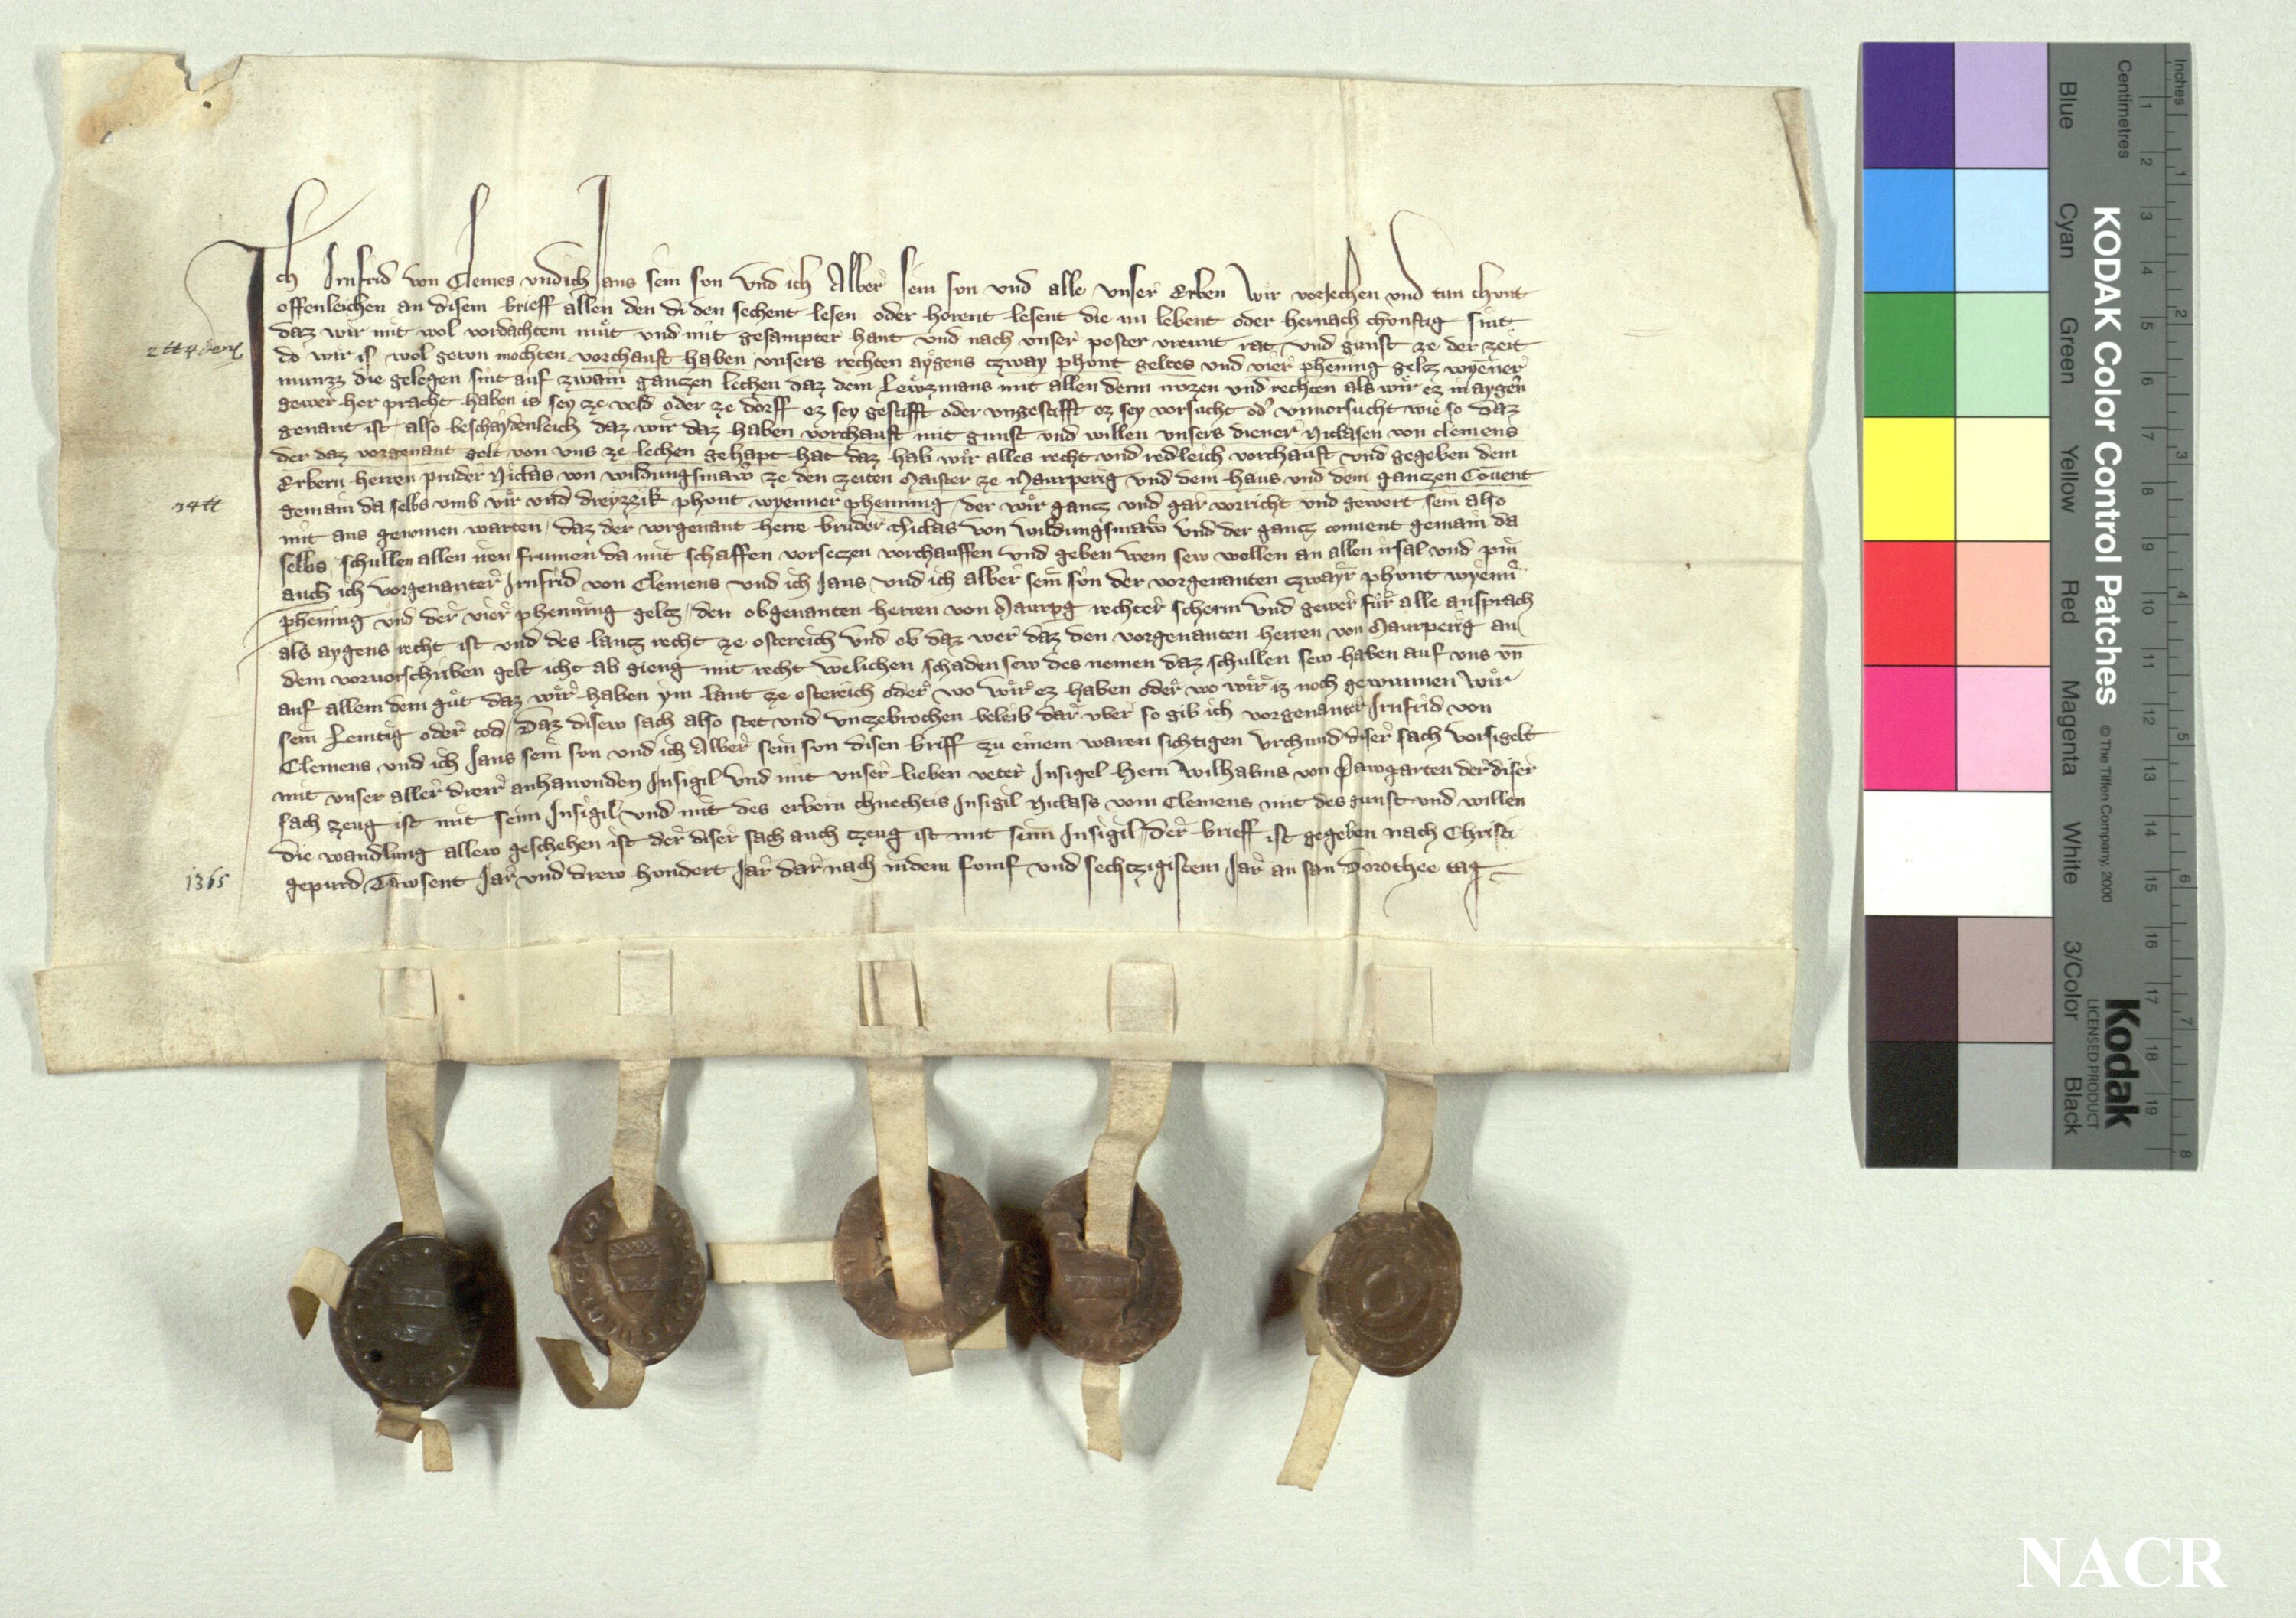 Ich Irnfrid von Clemes und ich Jans sein son und ich Alber sein son und alle unser Erben wir vorjechen und tun chunt
offenleichen an disem brieff allen den di den sechent lesen oder horent lesent die nu lebent oder hernach chunftig sint
daz wir mit wol vordachtem mut und mit gesampter hant und nach unser pester vreunt rat und gunst ze der zeit
do wir is wol getun mochten vorchauft haben unsers rechten aygens czway phont geltes und vier phening geltz wyener
2 tt 4 den
munzz die gelegen sint auf zwain ganczen lechen daz dem Lewzmans mit allen denn nuzen und rechten als wir ez in aygen
gewer her pracht haben is sey ze veld oder ze dorff ez sey gestifft oder ungestifft ez sey vorsucht od unvorsucht wie so daz
genant ist also beschaydenleich daz wir daz haben vorchauft mit gunst und willen unsers diener Niclasen von clemens
der daz vorgenant gelt von uns ze lechen gehapt hat daz hab wir alles recht und redleich vorchauft und gegeben dem
Erbern herren pruder Niclas von wildungsmaw ze den zeiten Maister ze Maurperig und dem haus und dem ganczen Covent
34 tt
gemain da selbs umb vir und dreyzzik phont wyenner phenning der wir gancz und gar vorricht und gewert sein also
mit aus genomen warten daz der vorgenant herre bruder Niclas von wildungsmaw und der gancz convent gemain da
selbs schullen allen iren frumen da mit schaffen vorseczen vorchauffen und geben wem sew wollen an allen irsal und pin
auch ich vorgenanter Irnfrid von Clemens und ich Jans und ich alber sein sun der vorgenanten czwayr phont wyenn
phening und der vier phenning geltz den obgenanten herren von Maurpg rechter scherm und gewer fur alle ansprach
als aygens recht ist und des lancz recht ze ostereich und ob daz wer daz den vorgenanten herren von Maurperig an
dem vorvorschriben gelt icht ab gieng mit recht welichen schaden sew des nemen daz schullen sew haben auf uns un
auf allem dem gut daz wir haben ym lant ze ostereich oder wo wir ez haben oder wo wir iz noch gewunnen wir
sein lemtig oder tod Daz disew sach also stet und unzebrochen beleib dar uber so gib ich vorgenanter Irnfrid von
Clemens und ich Jans sein son und ich Alber sein son disen briff zu einem waren sichtigen urchund diser sach vorsigelt
mit unser aller dreirr anhanonden Insigil und mit unser lieben veter Insigel hern Wilhalms von Pawgarten der diser
sach zeug ist mit seim Insigil und mit des erbern chnechtis Insigil Niclass vom Clemens mit des gunst und willen
die wandlung allew geschehen ist der diser sach auch czeug ist mit seim Insigil der brieff ist gegeben nach Christi
1365
gepurd Tawsent Jar und drew hundert Jar dar nach in dem fomf und sechczigistem Jar an san Dorothee tag
Inches
Centimetres
KODAK Color Control Patches
© The Tiffen Company, 2000
Kodak
LICENSED PRODUCT
Blue Cyan Green Yellow Red Magenta White 3/Color Black
1 2 3 4 5 6 7 8
1 2 3 4 5 6 7 8 9 10 11 12 13 14 15 16 17 18 19
NACR